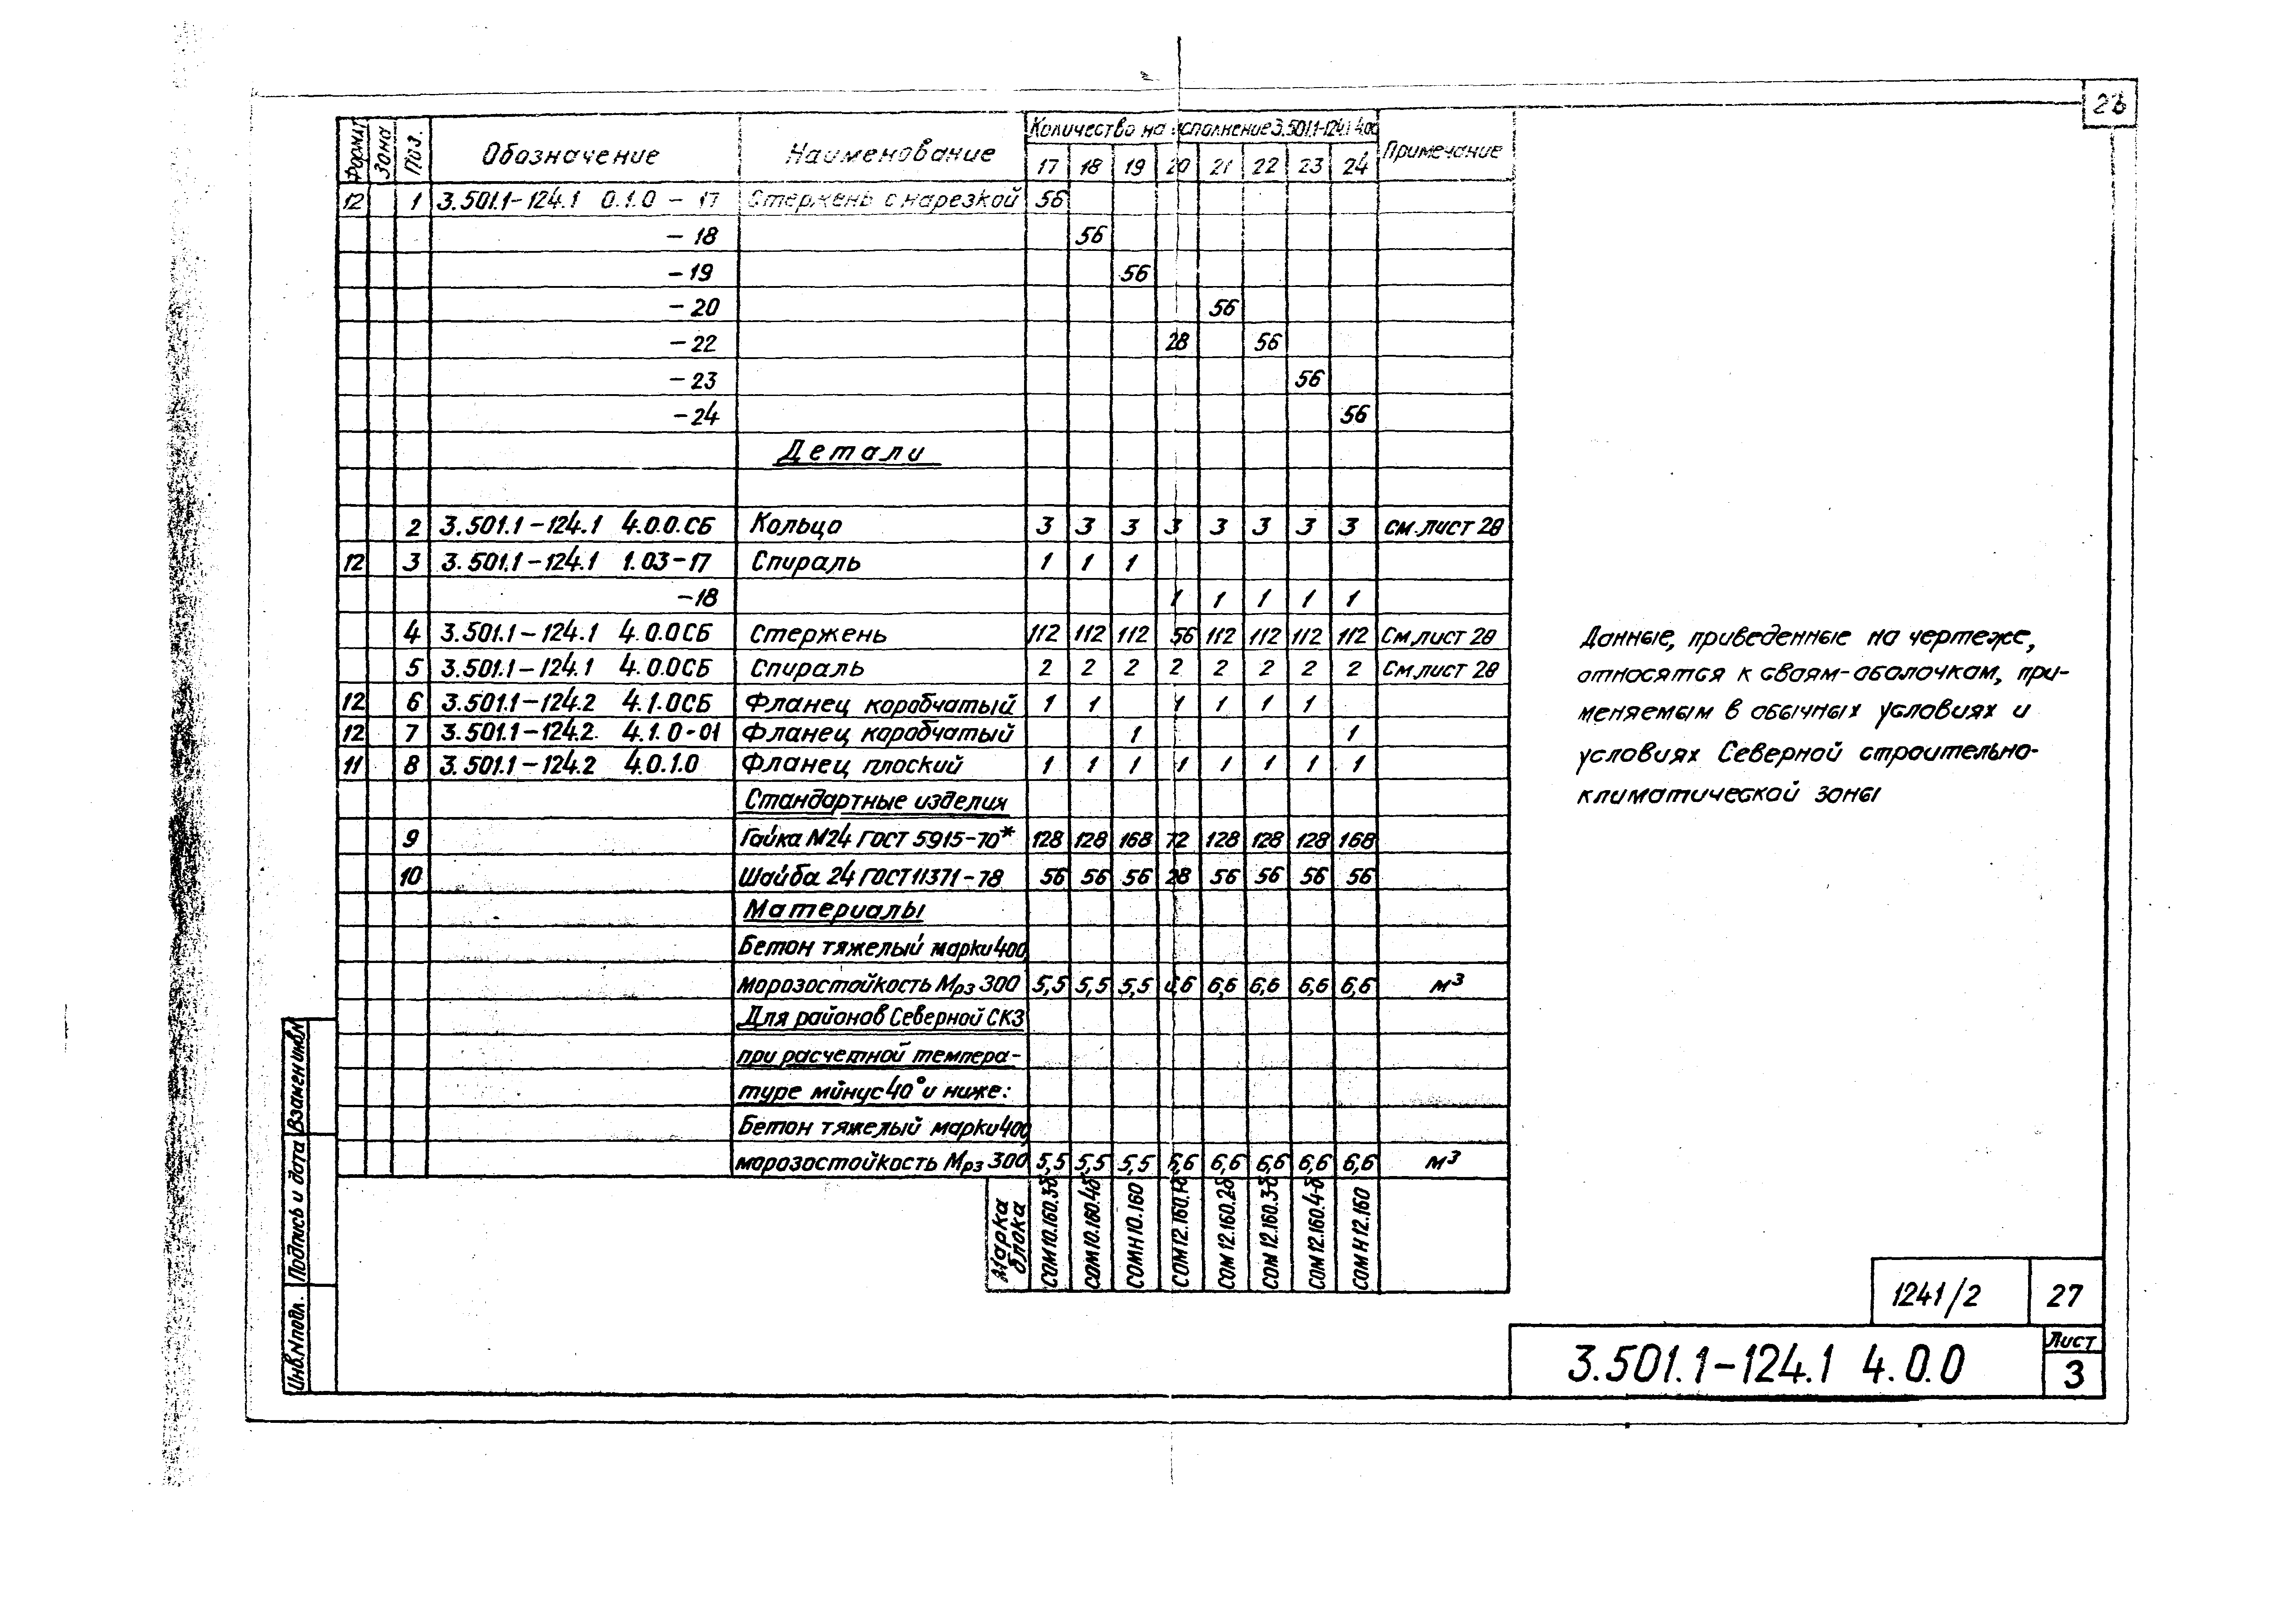 23
Формат Зона Поз. Обозначение Наименование Количество на исполнение 3.501.1-124.1 4.00 Примечание
17 18 19 20 21 22 23 24
12 1 3.501.1-124.1 0.1.0 - 17 Стержень с нарезкой 56
- 18 56
- 19 56
- 20 56
- 22 28 56
- 23 56
- 24 56
Детали
2 3.501.1-124.1 4.0.0.СБ Кольцо 3 3 3 3 3 3 3 3 см.лист 28
12 3 3.501.1-124.1 1.03-17 Спираль 1 1 1
-18 1 1 1 1 1
4 3.501.1-124.1 4.0.0СБ Стержень 112 112 112 56 112 112 112 112 См.лист 28
5 3.501.1-124.1 4.0.0СБ Спираль 2 2 2 2 2 2 2 2 См.лист 28
12 6 3.501.1-124.2 4.1.0СБ Фланец коробчатый 1 1 1 1 1 1
12 7 3.501.1-124.2. 4.1.0-01 Фланец коробчатый 1 1
11 8 3.501.1-124.2 4.0.1.0 Фланец плоский 1 1 1 1 1 1 1 1
Стандартные изделия
9 Гайка М24 ГОСТ 5915-70* 128 128 168 72 128 128 128 168
10 Шайба 24 ГОСТ 11371-78 56 56 56 28 56 56 56 56
Материалы
Бетон тяжелый марки 400,
морозостойкость Мрз 300 5,5 5,5 5,5 6,6 6,6 6,6 6,6 6,6 м³
Для районов Северной СКЗ
при расчетной темпера-
туре минус 40° и ниже:
Бетон тяжелый марки 400,
морозостойкость Мрз 300 5,5 5,5 5,5 6,6 6,6 6,6 6,6 6,6 м³
Марка блока СОМ10.160.3-б СОМ10.160.4б СОМН10.160 СОМ12.160.1-б СОМ12.160.2б СОМ12.160.3-б СОМ12.160.4-б СОМН12.160
Данные, приведенные на чертеже,
относятся к сваям-оболочкам, при-
меняемым в обычных условиях и
условиях Северной строительно-
климатической зоны
Взамен инв.N
Подпись и дата
Инв.N подл.
1241/2 27
3.501.1-124.1 4.0.0
Лист
3